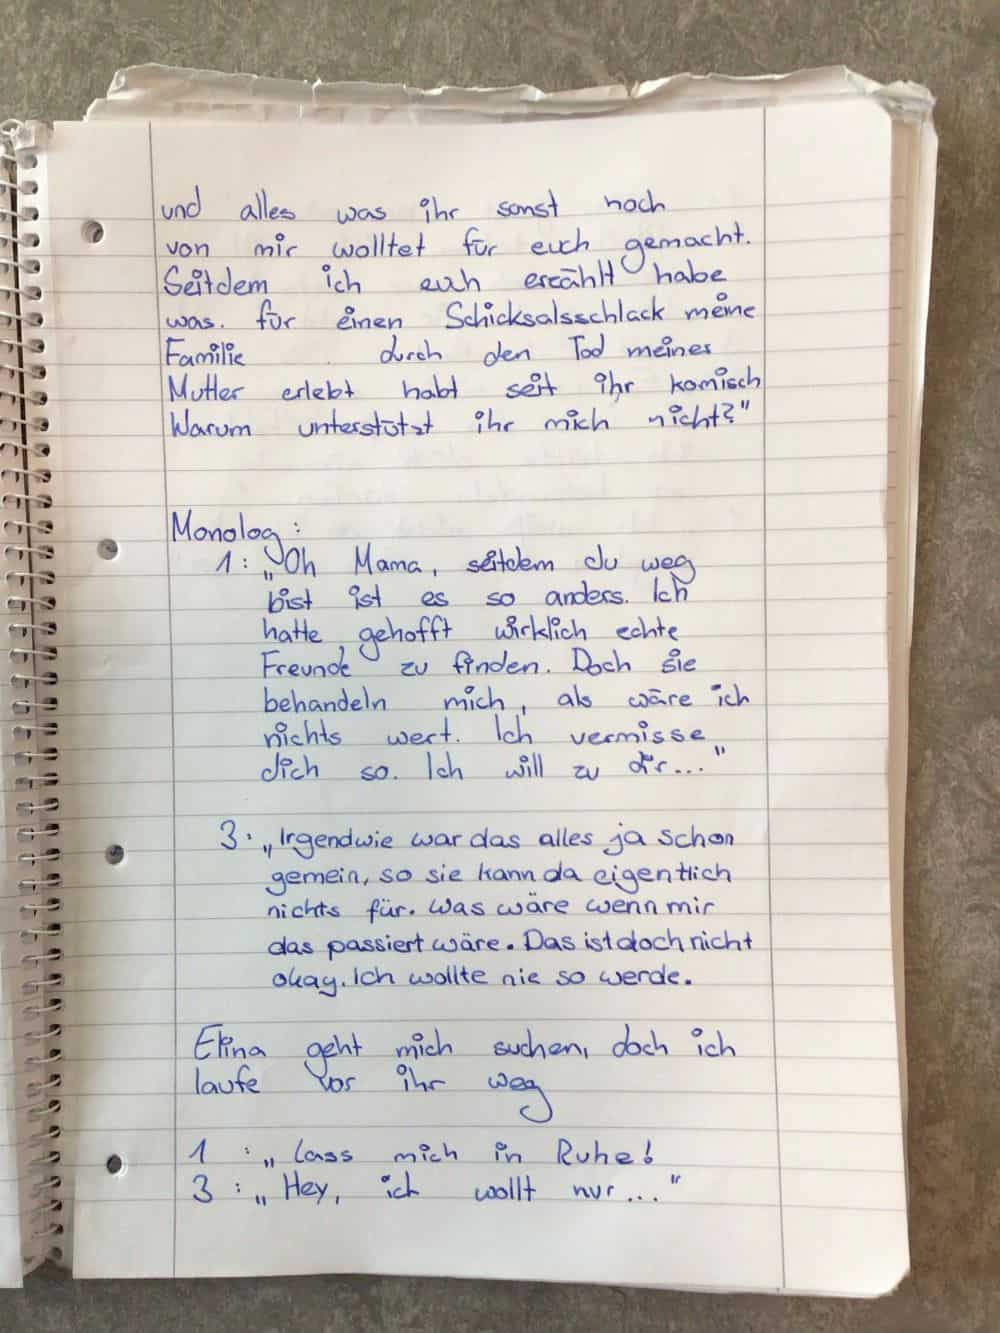 und alles was ihr sonst noch
von mir wolltet für euch gemacht.
Seitdem ich euch erzählt habe
was. für einen Schicksalsschlack meine
Familie durch den Tod meiner
Mutter erlebt habt seit ihr komisch
Warum unterstützt ihr mich nicht?"
Monolog:
1: „Oh Mama, seitdem du weg
bist ist es so anders. Ich
hatte gehofft wirklich echte
Freunde zu finden. Doch sie
behandeln mich, als wäre ich
nichts wert. Ich vermisse
dich so. Ich will zu dir..."
3: „Irgendwie war das alles ja schon
gemein, so sie kann da eigentlich
nichts für. Was wäre wenn mir
das passiert wäre. Das ist doch nicht
okay. Ich wollte nie so werde.
Elina geht mich suchen, doch ich
laufe vor ihr weg
1 : „Lass mich in Ruhe!
3 : „Hey, ich wollt nur..."